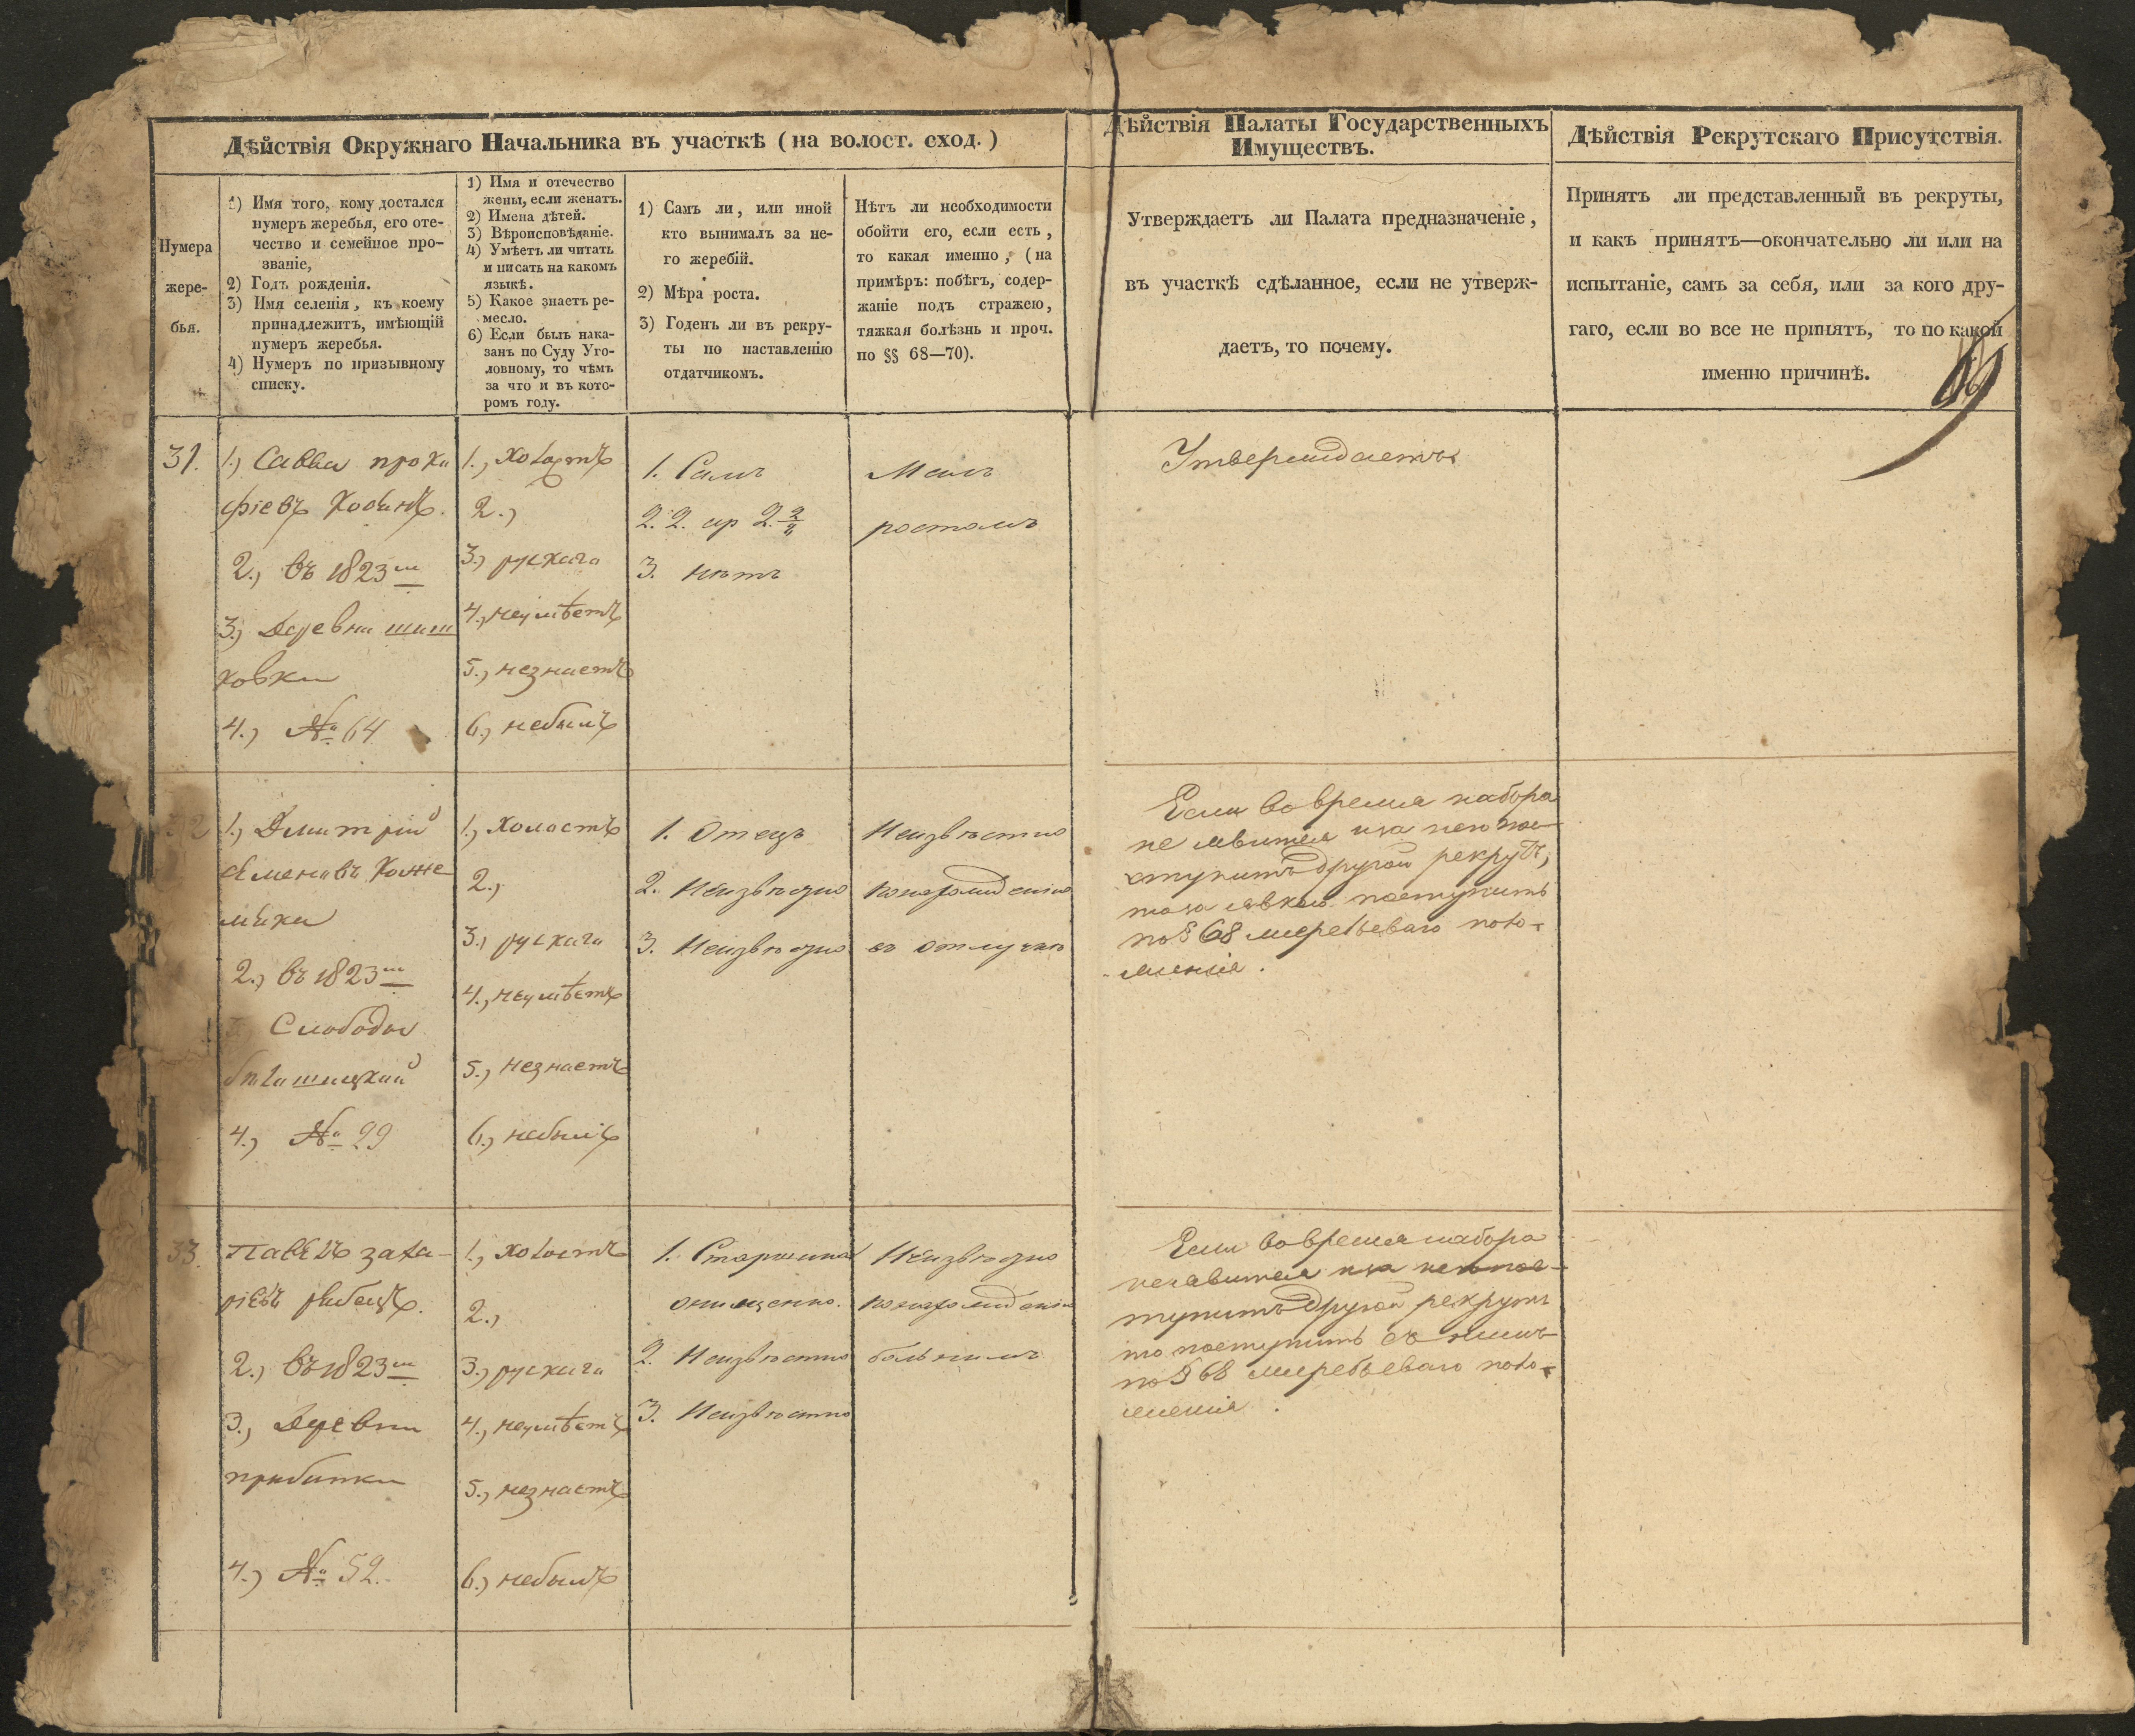 Дѣйствія Окружнаго Начальника въ участкѣ (на волост. сход.)
Дѣйствія Палаты Государственныхъ
Имуществъ.
Дѣйствія Рекрутскаго Присутствія.
Нумера
жере-
бья.
1) Имя того, кому достался
нумеръ жеребья, его оте-
чество и семейное про-
званіе,
2) Годъ рожденія.
3) Имя селенія, къ коему
принадлежитъ, имѣющій
нумеръ жеребья.
4) Нумеръ по призывному
списку.
1) Имя и отечество
жены, если женатъ.
2) Имена дѣтей.
3) Вѣроисповѣданіе.
4) Умѣетъ ли читать
и писать на какомъ
языкѣ.
5) Какое знаетъ ре-
месло.
6) Если былъ нака-
занъ по Суду Уго-
ловному, то чѣмъ
за что и въ кото-
ромъ году.
1) Самъ ли, или иной
кто вынималъ за не-
го жеребій.
2) Мѣра роста.
3) Годенъ ли въ рекру-
ты по наставленію
отдатчикомъ.
Нѣтъ ли необходимости
обойти его, если есть,
то какая именно, (на
примѣръ: побѣгъ, содер-
жаніе подъ стражею,
тяжкая болѣзнь и проч.
по §§ 68—70).
Утверждаетъ ли Палата предназначеніе,
въ участкѣ сдѣланное, если не утверж-
даетъ, то почему.
Принятъ ли представленный въ рекруты,
и какъ принятъ—окончательно ли или на
испытаніе, самъ за себя, или за кого дру-
гаго, если во все не принятъ, то по какой
именно причинѣ.
31.
1., Савва проко
фіевъ
2., въ 1823 м
3., Деревни шиш
ковки
4., № 64
1., холостъ
2.,
3., рускаго
4., неумѣетъ
5., незнаетъ
6., небылъ
1. Самъ
2. 2. ар 2 2/8
3. нѣтъ
Малъ
ростомъ
Утверждаетъ
32
1., Дмитрій
Семеновъ Коже
мяка
2., въ 1823 м
Слободы
4., № 29
1., Холостъ
2.,
3., рускаго
4., неумѣетъ
5., незнаетъ
6., небылъ
1. Отецъ
2. Неизвѣстно
3. Неизвѣстно
Неизвѣстно
понахожденію
въ отлучке
Если вовремя набора
не явится и за него пос-
тупитъ другой рекрутъ,
то за явкою поступить
по § 68 жеребьеваго поло-
женія.
33.
Павелъ заха-
ріевъ рибецъ.
2., въ 1823 м
3., Деревни
4., № 52.
1., холостъ
2.,
3., рускаго
4., неумѣетъ
5., незнаетъ
6., небылъ
1. Старшина
онищенко.
2. Неизвѣстно
3. Неизвѣстно
Неизвѣстно
понахожденію
больнымъ
Если вовремя набора
неявится и за него пос-
тупитъ другой рекрутъ
то поступить съ нимъ
по § 68 жеребьеваго поло-
женія.